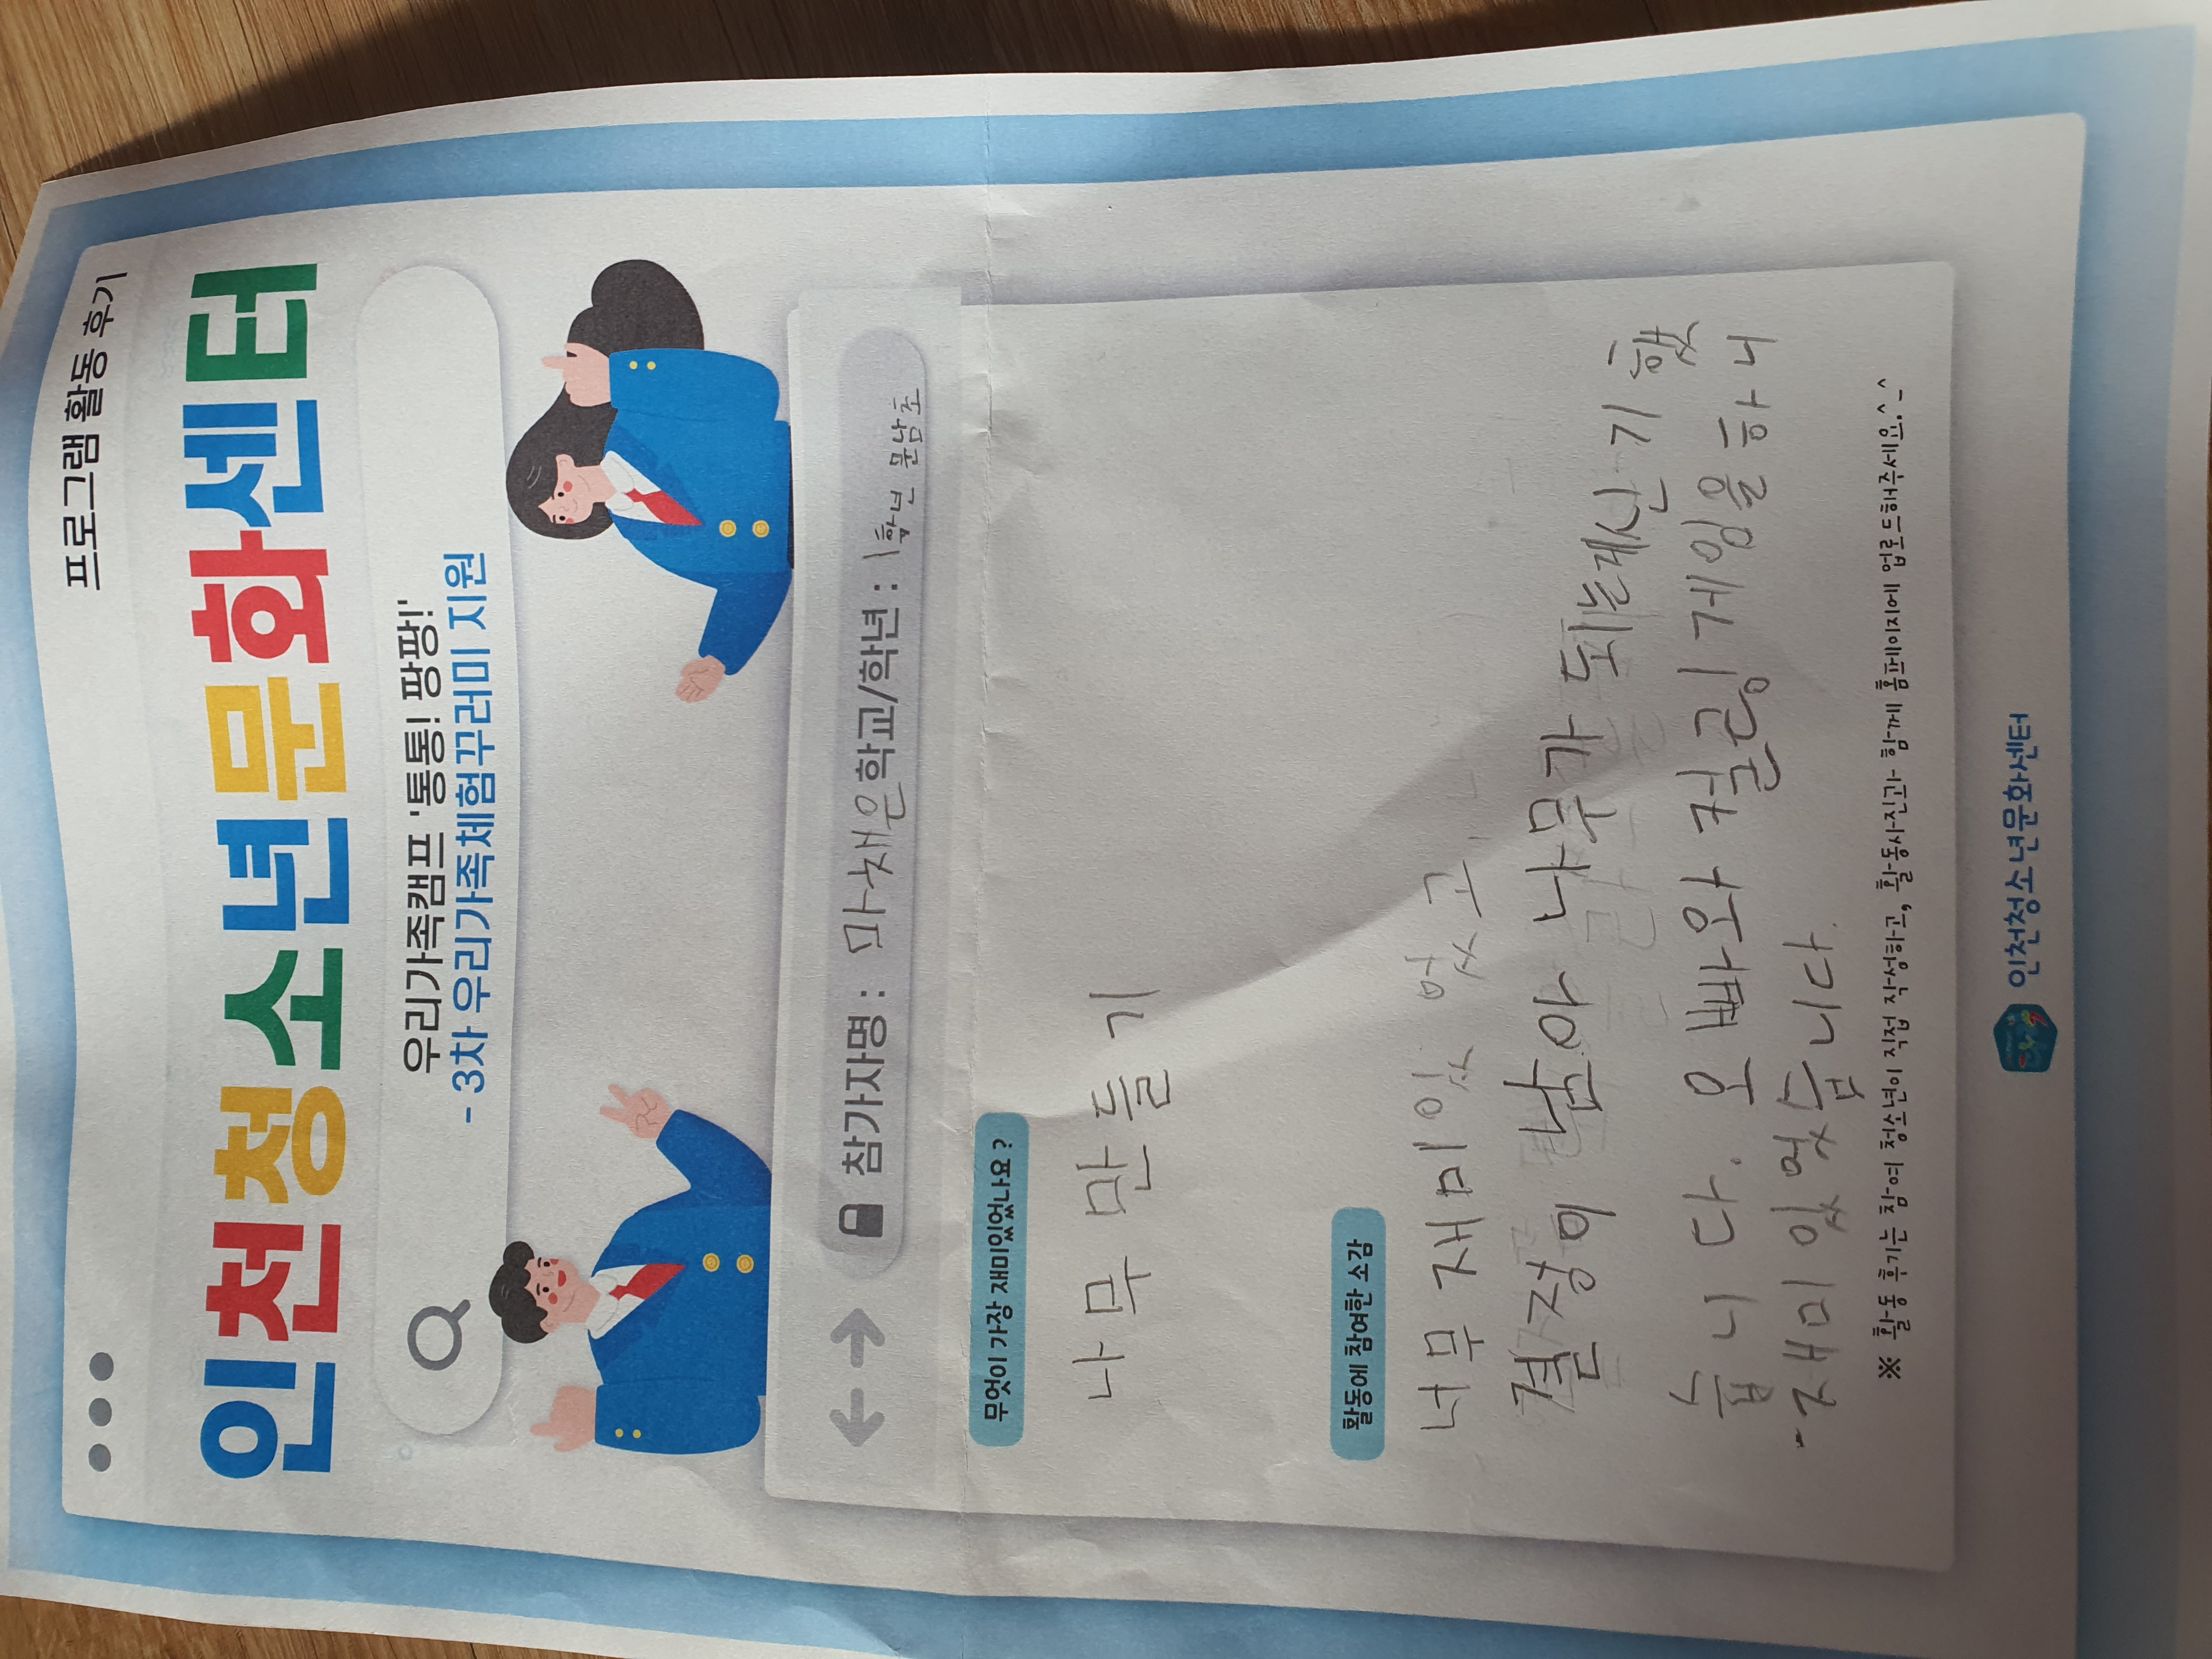 프로그램 활동 후기
인천청소년문화센터
우리가족캠프 '통통! 팡팡!'
- 3차 우리가족체험꾸러미 지원
참가자명 : 마채은 학교/학년 : 1학년 문남초
무엇이 가장 재미있었나요?
나무 만들기
활동에 참여한 소감
너무 재미있었고
결정이 남아 나무가 되는게 신기했
습니다. 오빠와 컬링 게임을 하니
재미있었습니다.
※ 활동 후기는 참여 청소년이 직접 작성하고, 활동사진과 함께 홈페이지에 업로드해주세요.^_^
인천청소년문화센터